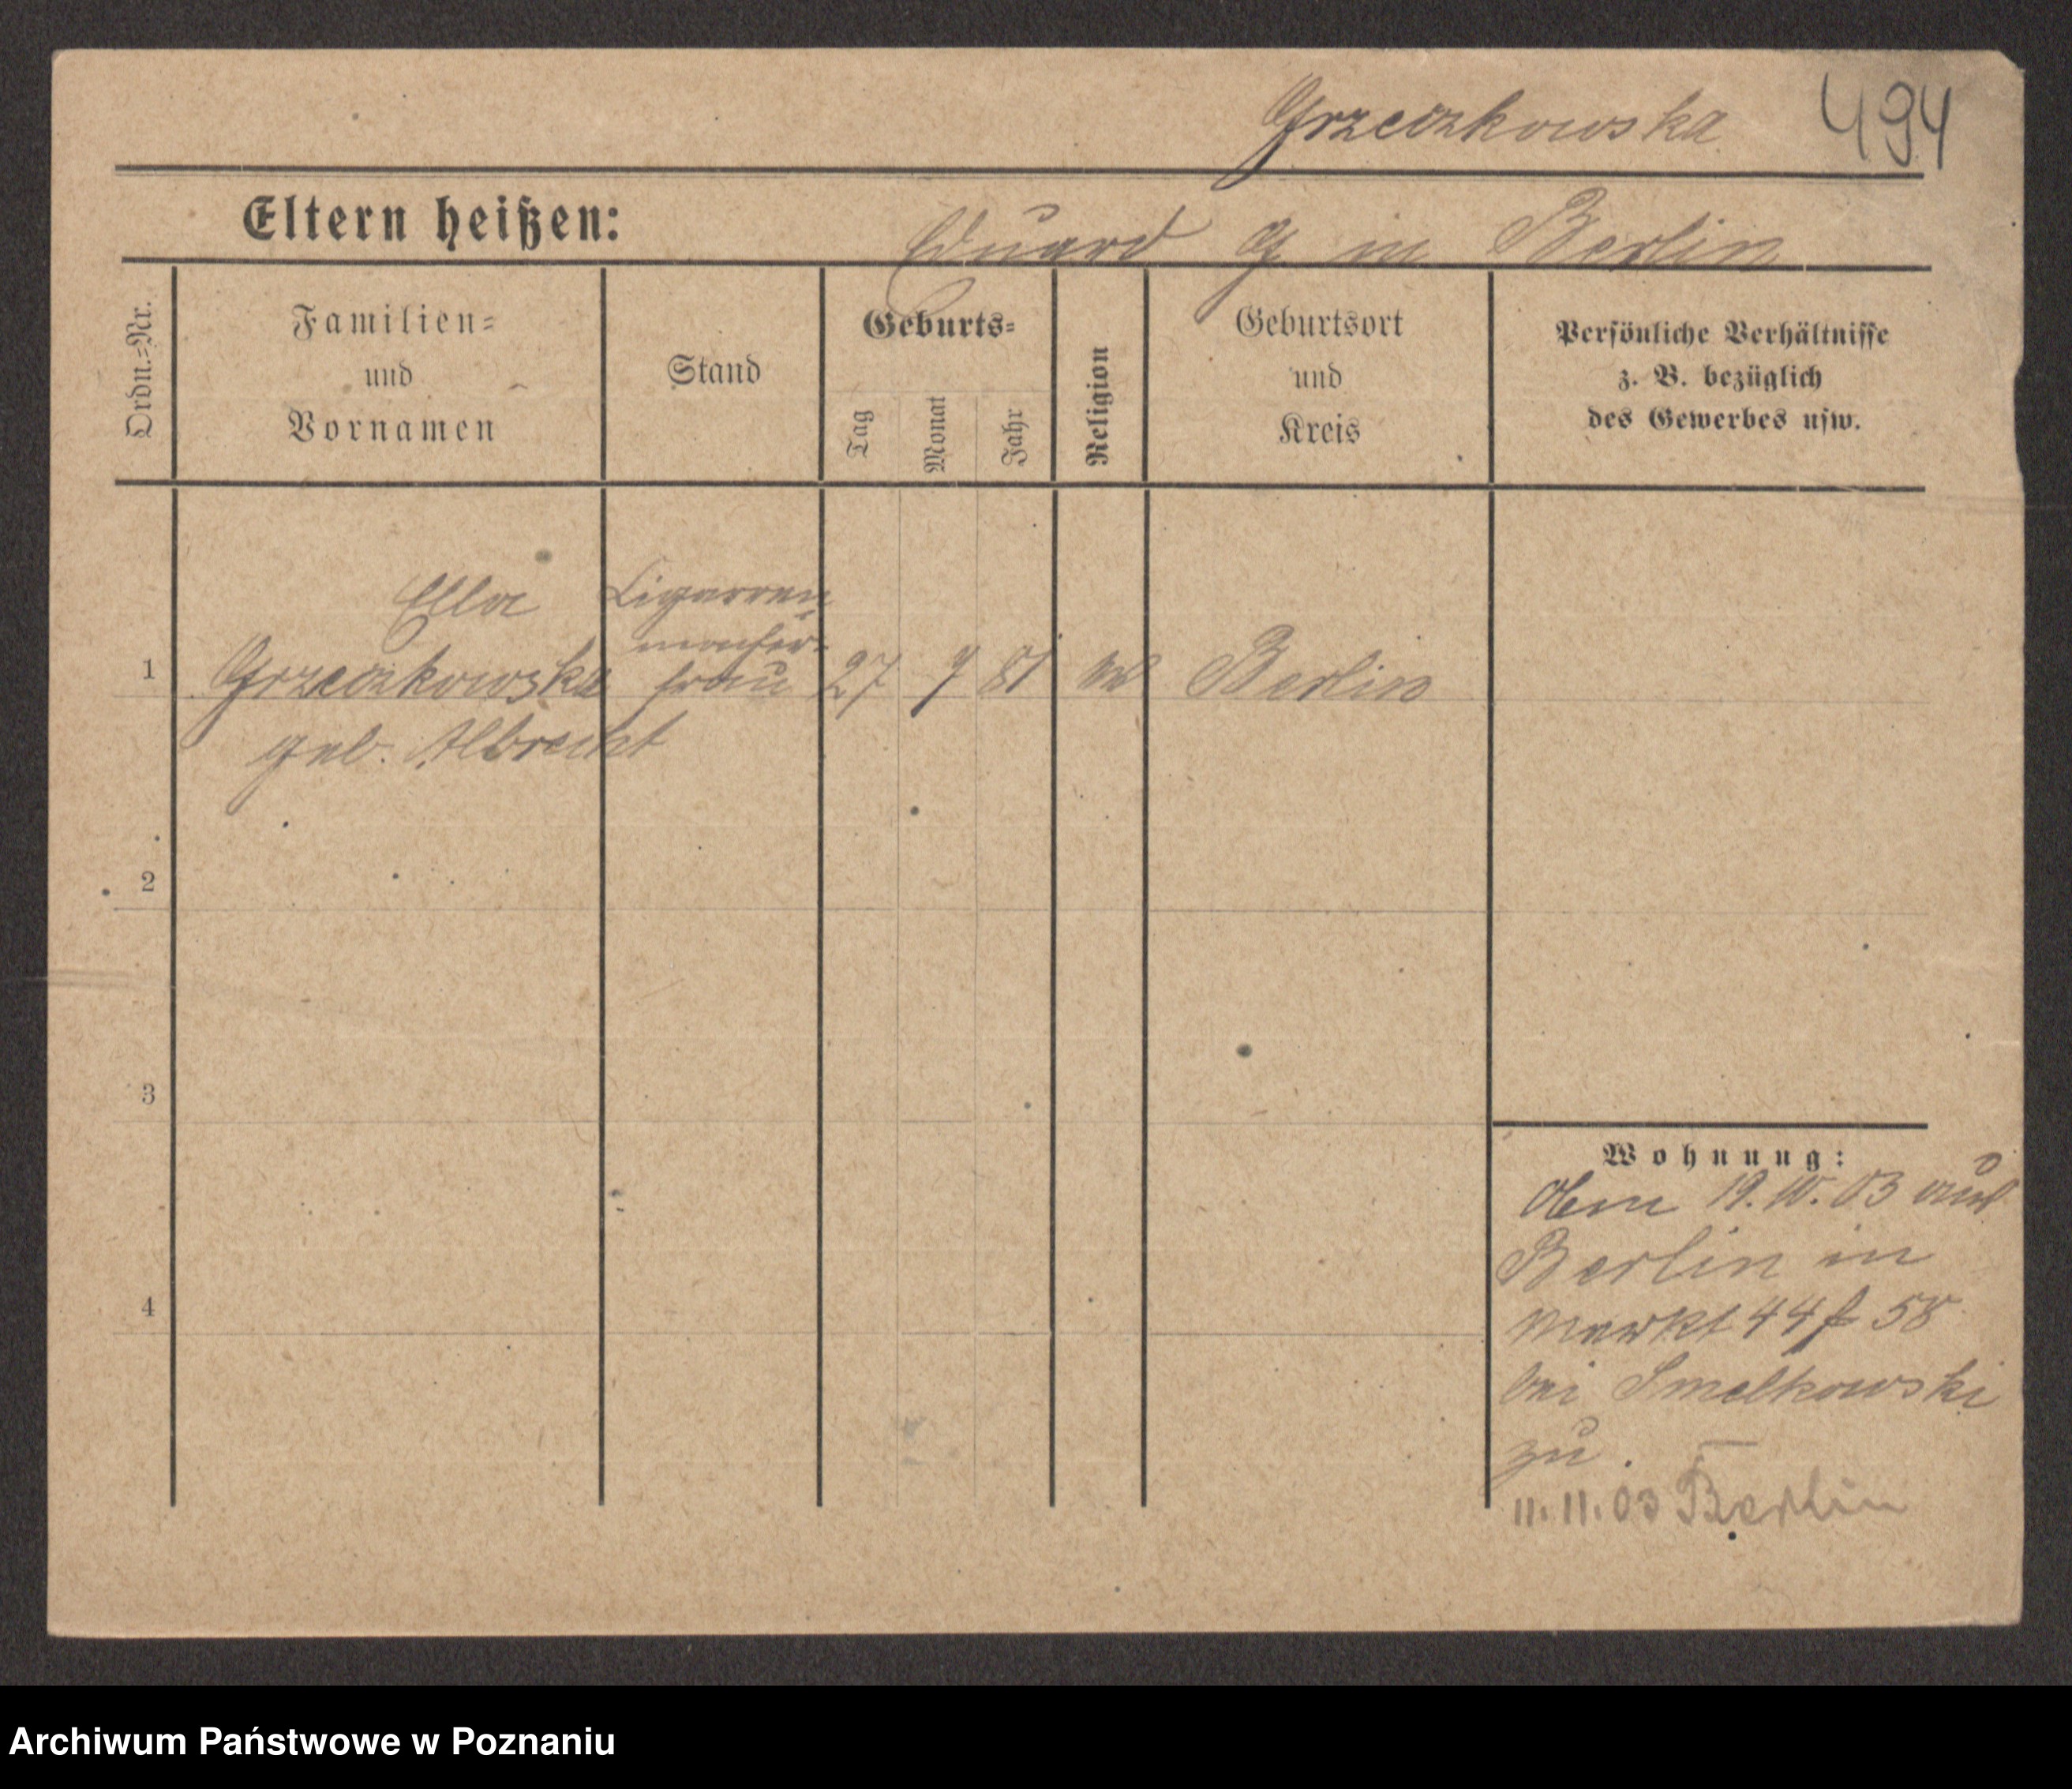 Grzeczkowska 494
Eltern heißen: Eduard G in Berlin
Ordn.=Nr.
Familien=
und
Vornamen
Stand
Geburts=
Tag
Monat
Jahr
Religion
Geburtsort
und
Kreis
Persönliche Verhältnisse
z. B. bezüglich
des Gewerbes usw.
Ella
Cigarren
macher-
1 Grzeczkowska frau 27 9 81 Berlin
geb. Albrecht
2
3
4
Wohnung:
19. 10. 03 aus
Berlin in
Markt 44 f 58
bei Smelkowski
zu.
11. 11. 03 Berlin
Archiwum Państwowe w Poznaniu